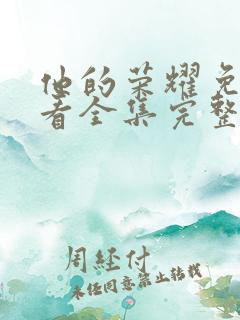 他的荣耀免
看全集完整
周经付
未经同意禁止转载